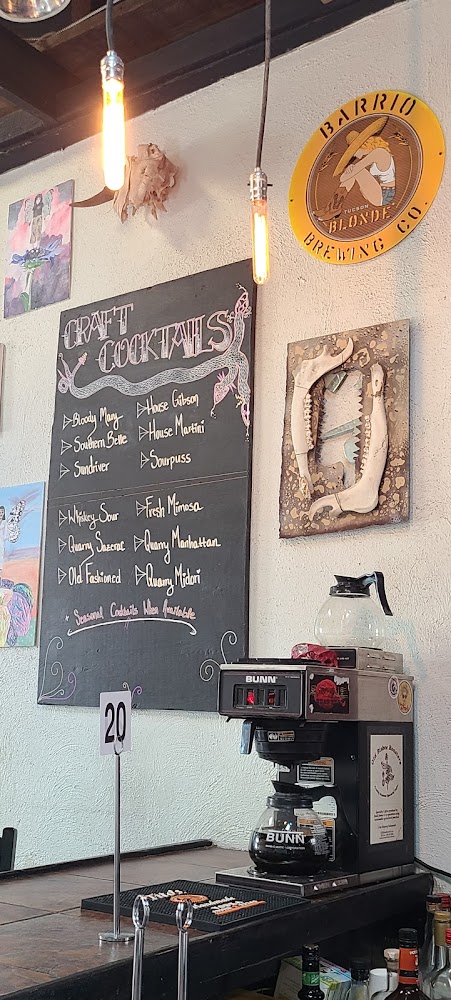 BARRIO
TUCSON
BLONDE
BREWING CO.
CRAFT
COCKTAILS
Bloody Mary
Southern Belle
Sundriver
House Gibson
House Martini
Sourpuss
Whiskey Sour
Quarry Sazerac
Old Fashioned
Fresh Mimosa
Quarry Manhattan
Quarry Midori
Seasonal Cocktails When Available
BUNN
20
BUNN